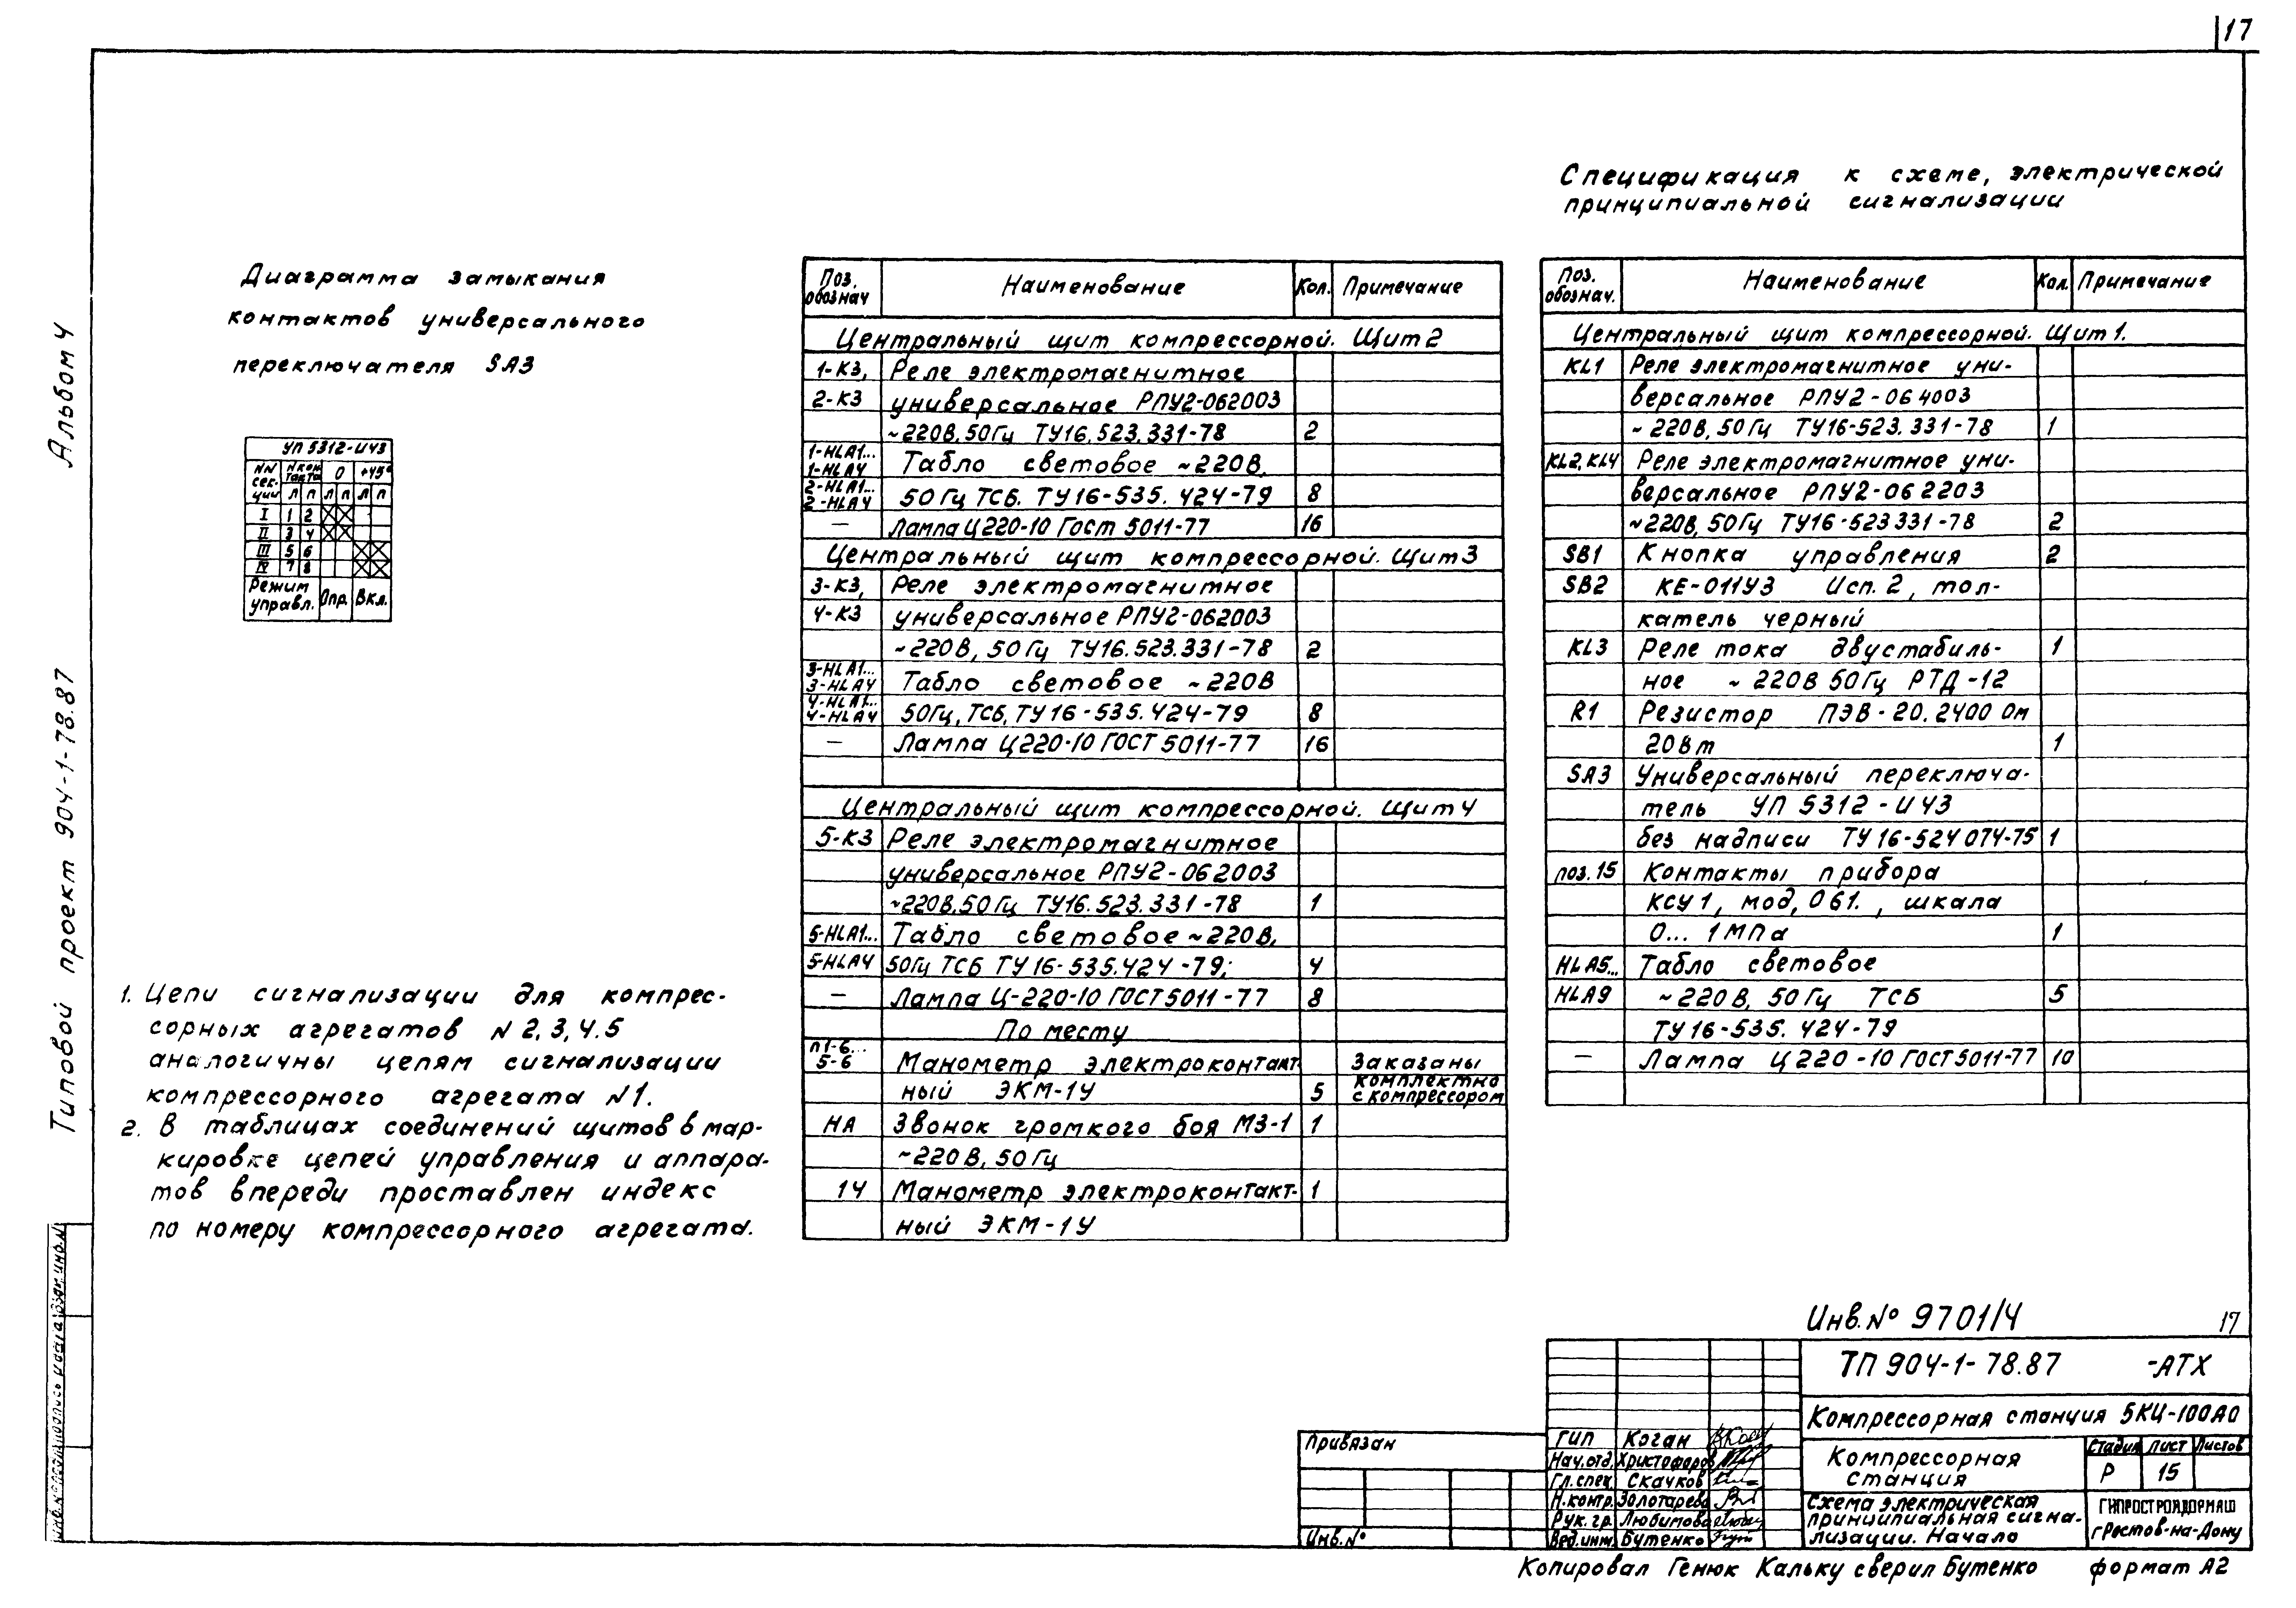 17
Альбом 4
Типовой проект 904-1-78.87
Диаграмма замыкания
контактов универсального
переключателя SA3
УП 5312-И43
NN сек-ции | N контакта | 0 | +45°
Л П Л П Л П
I 1 2
II 3 4
III 5 6
IV 7 8
Режим управл. Опр. Вкл.
1. Цепи сигнализации для компрес-
сорных агрегатов N 2,3,4.5
аналогичны цепям сигнализации
компрессорного агрегата N1.
2. В таблицах соединений щитов в мар-
кировке цепей управления и аппара-
тов впереди проставлен индекс
по номеру компрессорного агрегата.
Поз. обознач Наименование Кол. Примечание
Центральный щит компрессорной. Щит 2
1-К3, Реле электромагнитное
2-К3 универсальное РПУ2-062003
~220В, 50Гц ТУ16.523.331-78 2
1-HLA1...
1-HLA4 Табло световое ~220В,
2-HLA1...
2-HLA4 50Гц ТСБ. ТУ16-535.424-79 8
— Лампа Ц220-10 Гост 5011-77 16
Центральный щит компрессорной. Щит 3
3-К3, Реле электромагнитное
4-К3 универсальное РПУ2-062003
~220В, 50Гц ТУ16.523.331-78 2
3-HLA1...
3-HLA4 Табло световое ~220В
4-HLA1...
4-HLA4 50Гц, ТСБ, ТУ16-535.424-79 8
— Лампа Ц220-10 ГОСТ 5011-77 16
Центральный щит компрессорной. Щит 4
5-К3 Реле электромагнитное
универсальное РПУ2-062003
~220В, 50Гц ТУ16.523.331-78 1
5-HLA1... Табло световое ~220В,
5-HLA4 50Гц ТСБ ТУ16-535.424-79; 4
— Лампа Ц-220-10 ГОСТ 5011-77 8
По месту
П1-6...
5-6 Манометр электроконтакт- Заказаны
ный ЭКМ-1У 5 комплектно
с компрессором
HA Звонок громкого боя МЗ-1 1
~220В, 50Гц
14 Манометр электроконтакт- 1
ный ЭКМ-1У
Спецификация к схеме, электрической
принципиальной сигнализации
Поз. обознач. Наименование Кол. Примечание
Центральный щит компрессорной. Щит 1.
KL1 Реле электромагнитное уни-
версальное РПУ2-064003
~220В, 50Гц ТУ16-523.331-78 1
KL2, KL4 Реле электромагнитное уни-
версальное РПУ2-062203
~220В, 50Гц ТУ16-523331-78 2
SB1 Кнопка управления 2
SB2 КЕ-011У3 Исп. 2, тол-
катель черный
KL3 Реле тока двустабиль- 1
ное ~220В 50Гц РТД-12
R1 Резистор ПЭВ-20. 2400 Ом
20Вт 1
SA3 Универсальный переключа-
тель УП 5312-И43
без надписи ТУ16-524 074-75 1
поз. 15 Контакты прибора
КСУ1, мод, 061. , шкала
0... 1МПа 1
HLA5... Табло световое
HLA9 ~220В, 50Гц ТСБ 5
ТУ16-535.424-79
— Лампа Ц220-10 ГОСТ 5011-77 10
Инв. № 9701/4
17
ТП 904-1-78.87 -АТХ
Компрессорная станция 5КЦ-100А0
Компрессорная станция
Стадия Лист Листов
Р 15
Схема электрическая
принципиальная сигна-
лизации. Начало
ГИПРОСТРОЙДОРМАШ
г.Ростов-на-Дону
ГИП Коган
Нач.отд. Христофоров
Гл.спец. Скачков
Н.контр. Золотарева
Рук.гр. Любимова
Вед.инж. Бутенко
Привязан
Инв. №
Инв. № подл. Подпись и дата Взам. инв. №
Копировал Генюк Кальку сверил Бутенко формат А2